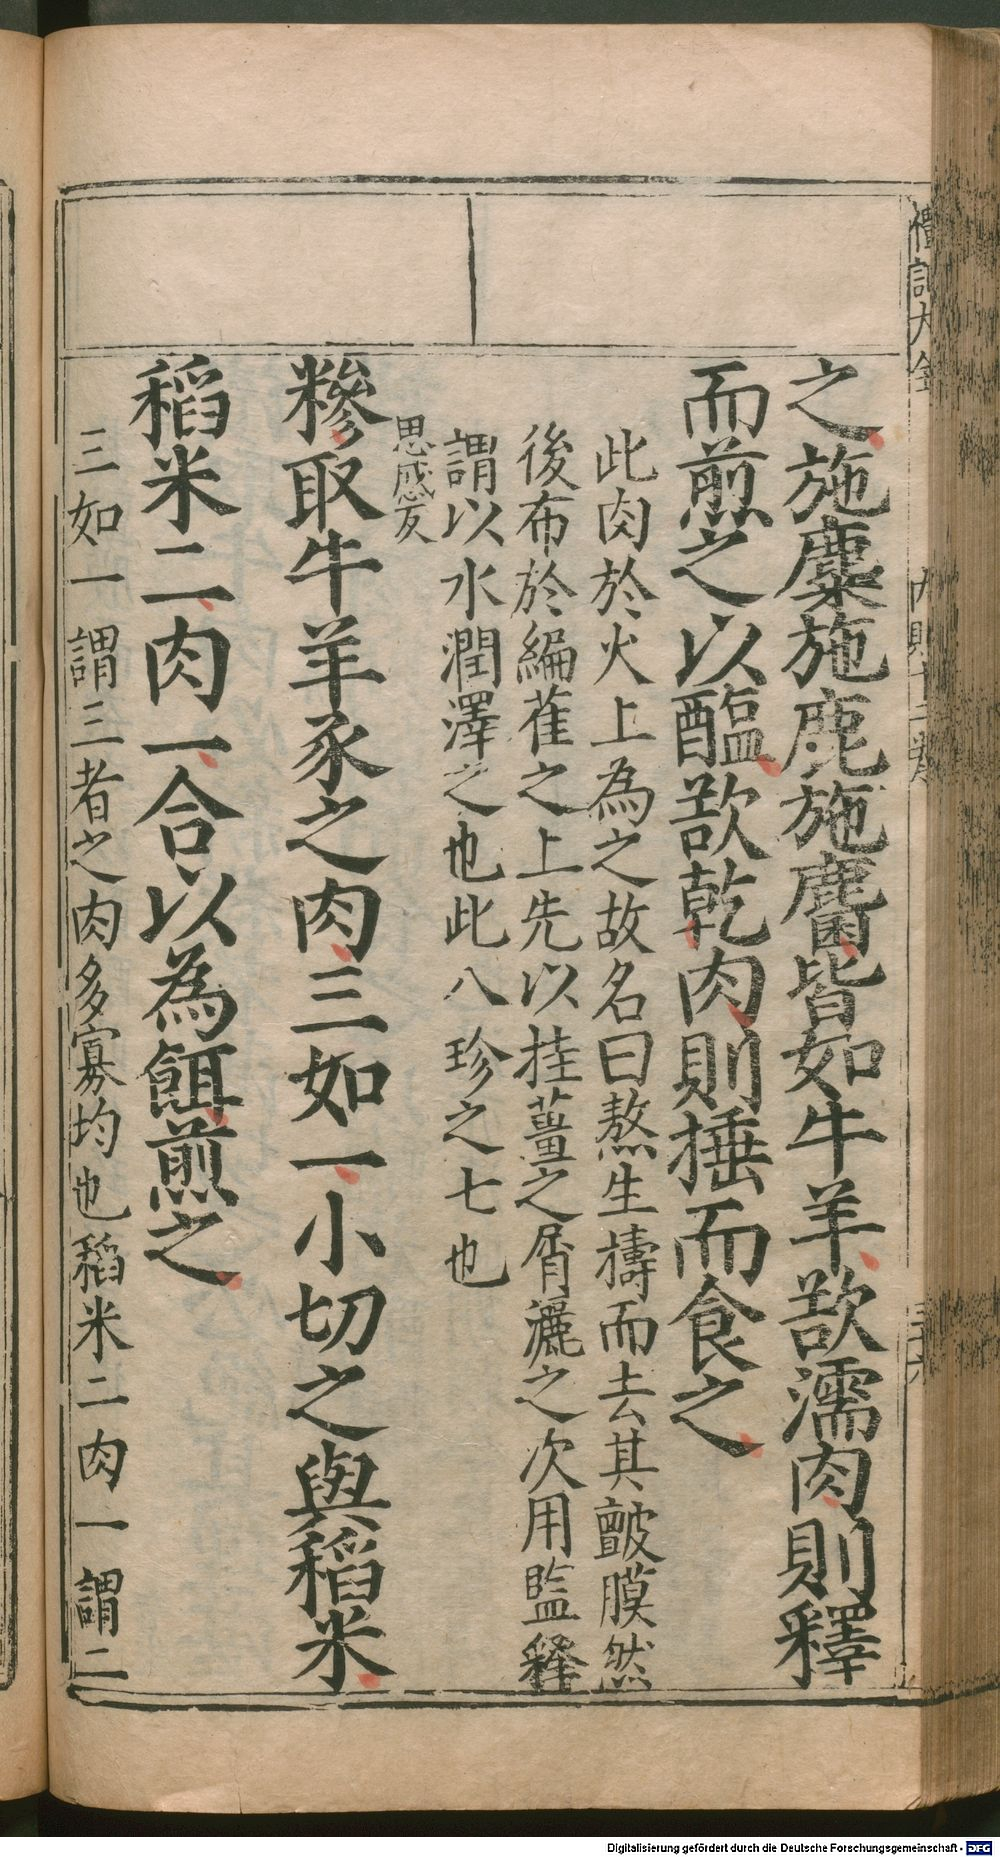 之施麋施鹿施麕皆如牛羊欲濡肉則釋
而煎之以醢欲乾肉則捶而食之
此肉於火上為之故名曰熬生擣而去其皽膜然
後布於編萑之上先以桂薑之屑灑之次用塩釋
謂以水潤澤之也此八珍之七也
思感反
糝取牛羊豕之肉三如一小切之與稻米
稻米二肉一合以為餌煎之
三如一謂三者之肉多寡均也稻米二肉一謂二
Digitalisierung gefördert durch die Deutsche Forschungsgemeinschaft - DFG